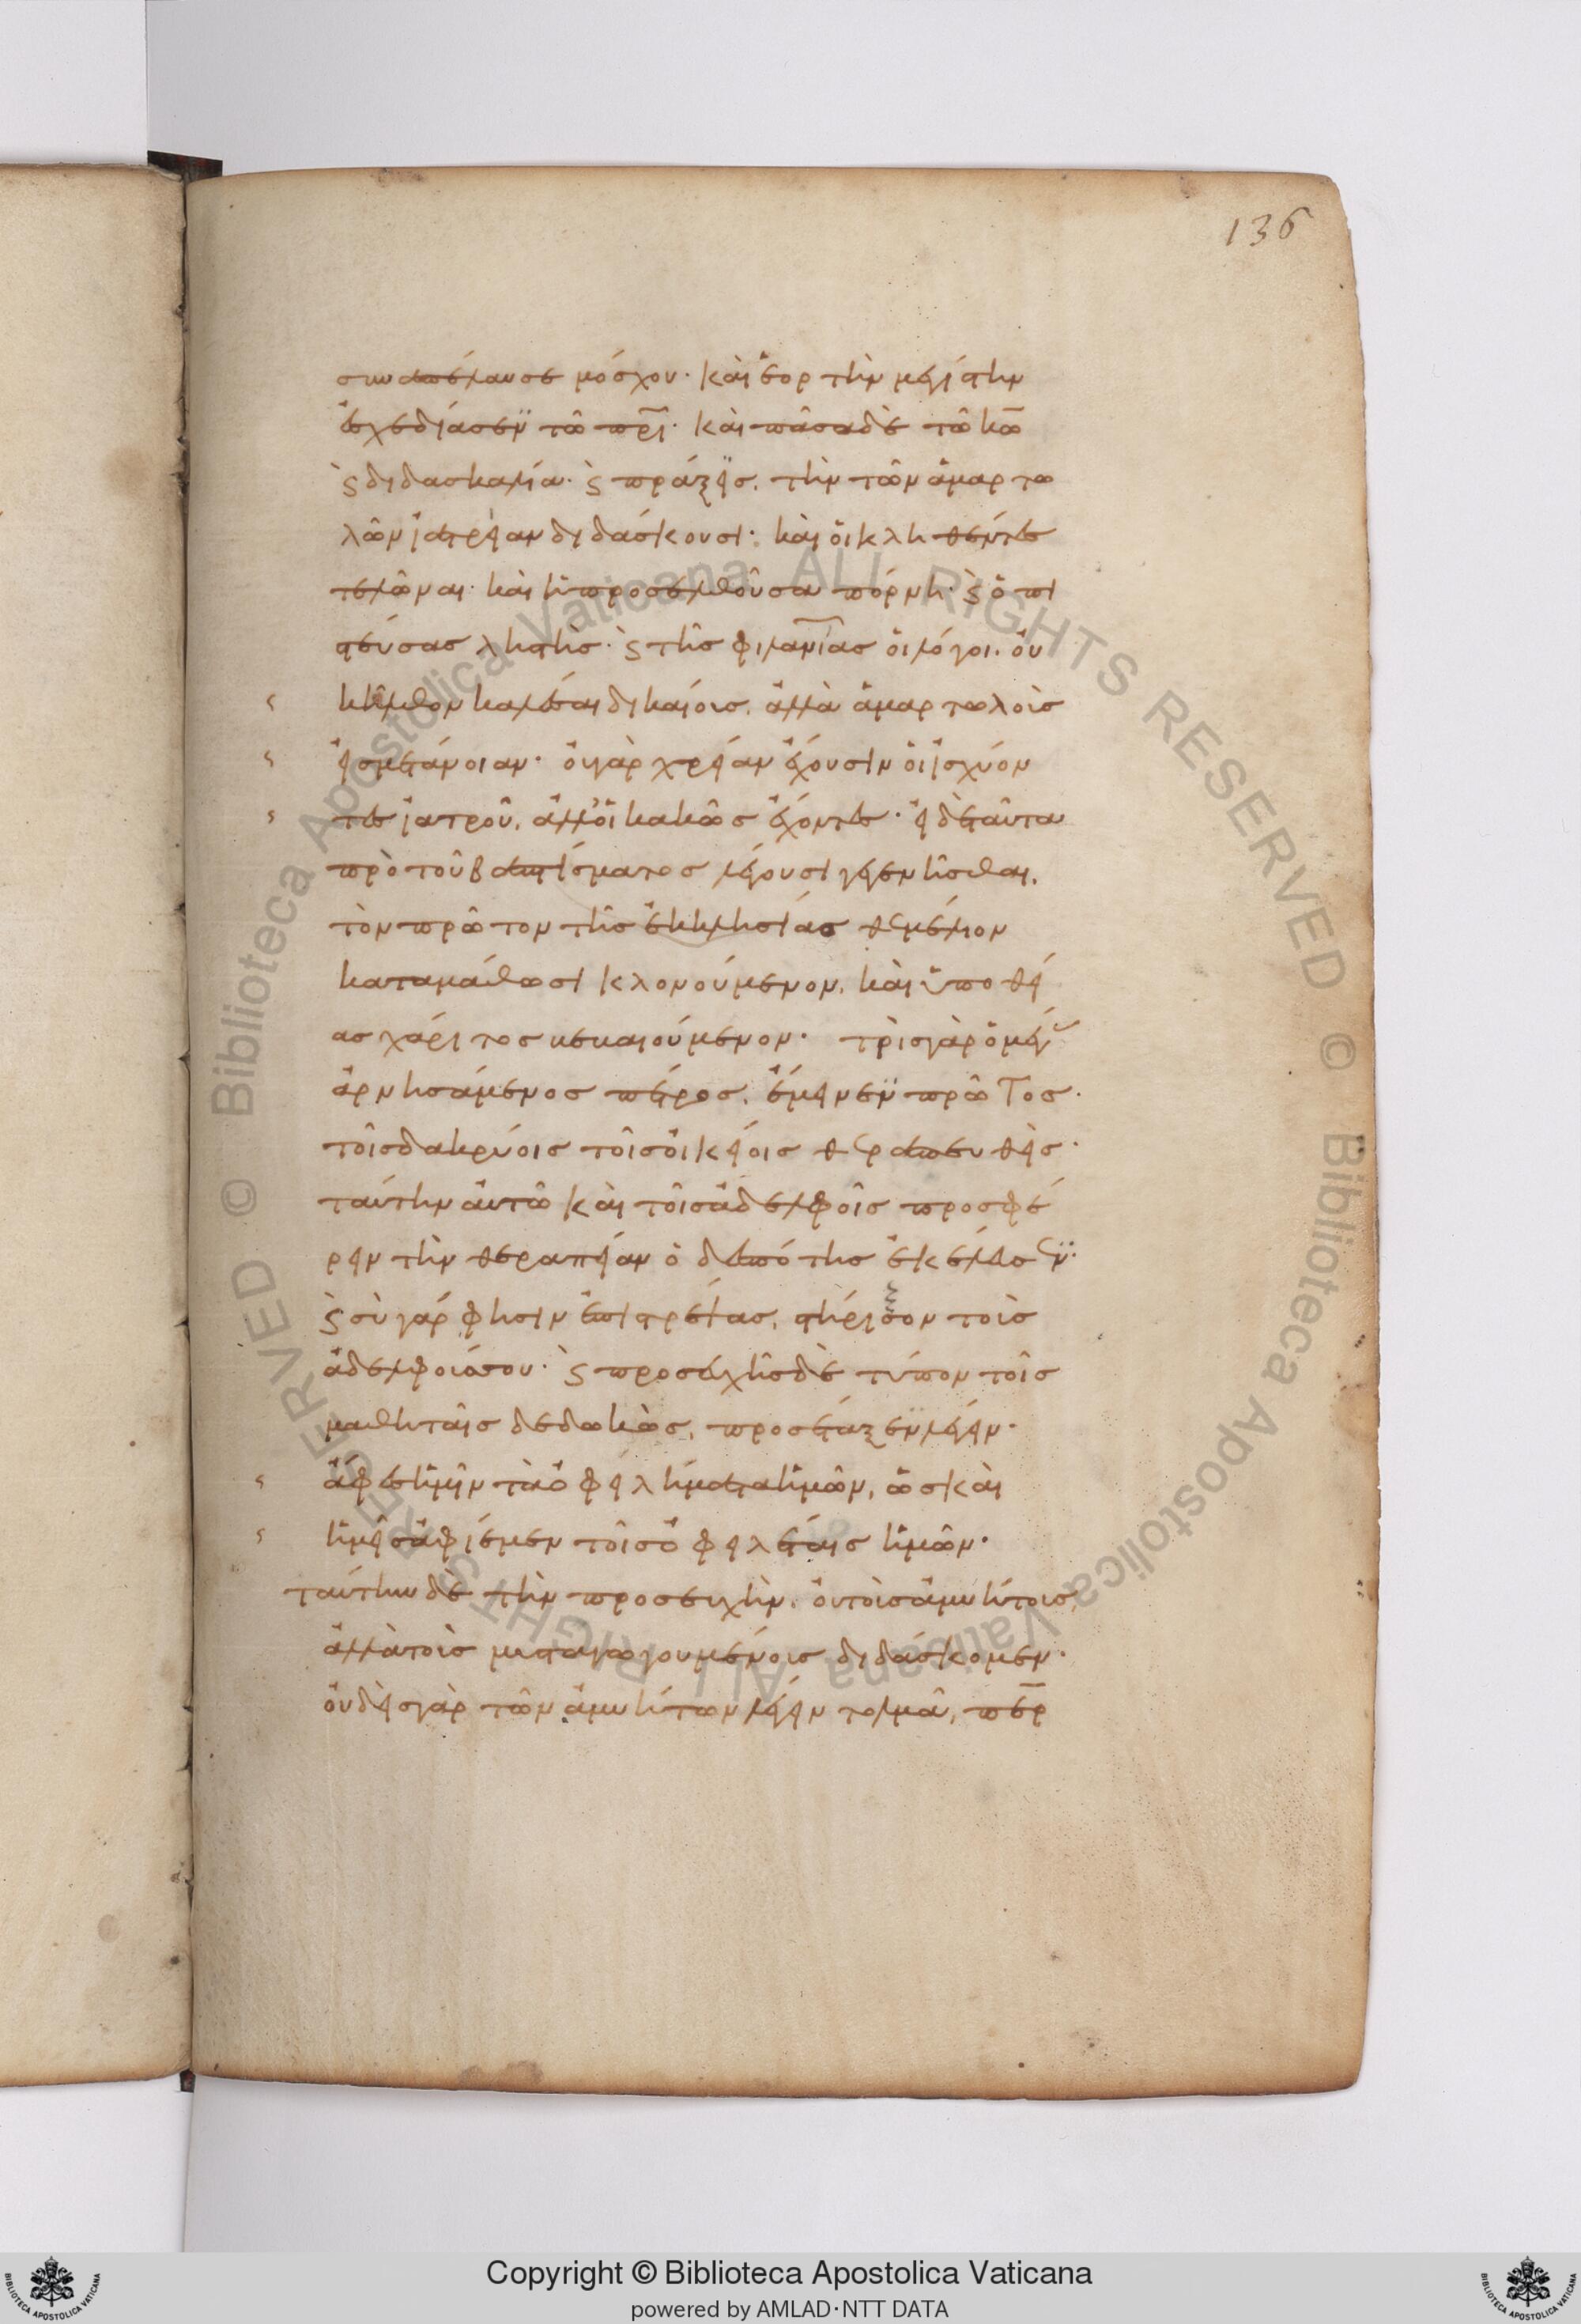 136
συναπέλαυσε μόσχου· καὶ ἑορτὴν μεγίστην
ἐσχεδίασεν τῶ πρι· καὶ πᾶσα δὲ τῶ κω
ϛ διδασκαλία· ϛ πράξεις, τὴν τῶν ἁμαρτω
λῶν ἰατρείαν διδάσκουσι· καὶ οἱ κληθέντες
τελῶναι· καὶ ἡ προσελθοῦσα πόρνη· ϛ ὁ πι
στεύσας ληστὴς· ϛ τῆς φιλανίας οἱ λόγοι· οὐ
κ ἦλθον καλέσαι δικαίους, ἀλλὰ ἁμαρτωλοὺς
εἰς μετάνοιαν· οὐ γὰρ χρείαν ἔχουσιν οἱ ἰσχύον
τες ἰατροῦ, ἀλλ' οἱ κακῶς ἔχοντες· εἰ δὲ ταῦτα
πρὸ τοῦ βαπτίσματος λέγουσι γεγενῆσθαι,
τὸν πρῶτον τῆς ἐκκλησίας θεμέλιον
καταμάθωσι κλονούμενον, καὶ ὑπὸ θεί
ας χάριτος κεκαιούμενον· τρὶς γὰρ ὁ μέγας
ἀρνησάμενος πέτρος, ἔμεινεν πρῶτος·
τοῖς δακρύοις τοῖς οἰκείοις θεραπευθεὶς·
ταύτην αὐτῶ καὶ τοῖς ἀδελφοῖς προσφέ
ρειν τὴν θεραπείαν ὁ δεσπότης ἐκέλευσεν·
ϛ σὺ γάρ φησιν ἐπιστρέψας, στήριξον τοὺς
ἀδελφούς σου· ϛ προσευχῆς δὲ τύπον τοῖς
μαθηταῖς δεδωκὼς, προσέταξεν λέγειν·
ἄφες ἡμῖν τὰ ὀφειλήματα ἡμῶν, ὡς καὶ
ἡμεῖς ἀφίεμεν τοῖς ὀφειλέταις ἡμῶν·
ταύτην δὲ τὴν προσευχὴν, οὐ τοὺς ἀμυήτους,
ἀλλὰ τοὺς μυσταγωγουμένους διδάσκομεν·
οὐδεὶς γὰρ τῶν ἀμυήτων λέγειν τολμᾶ, περ
Copyright © Biblioteca Apostolica Vaticana
powered by AMLAD·NTT DATA